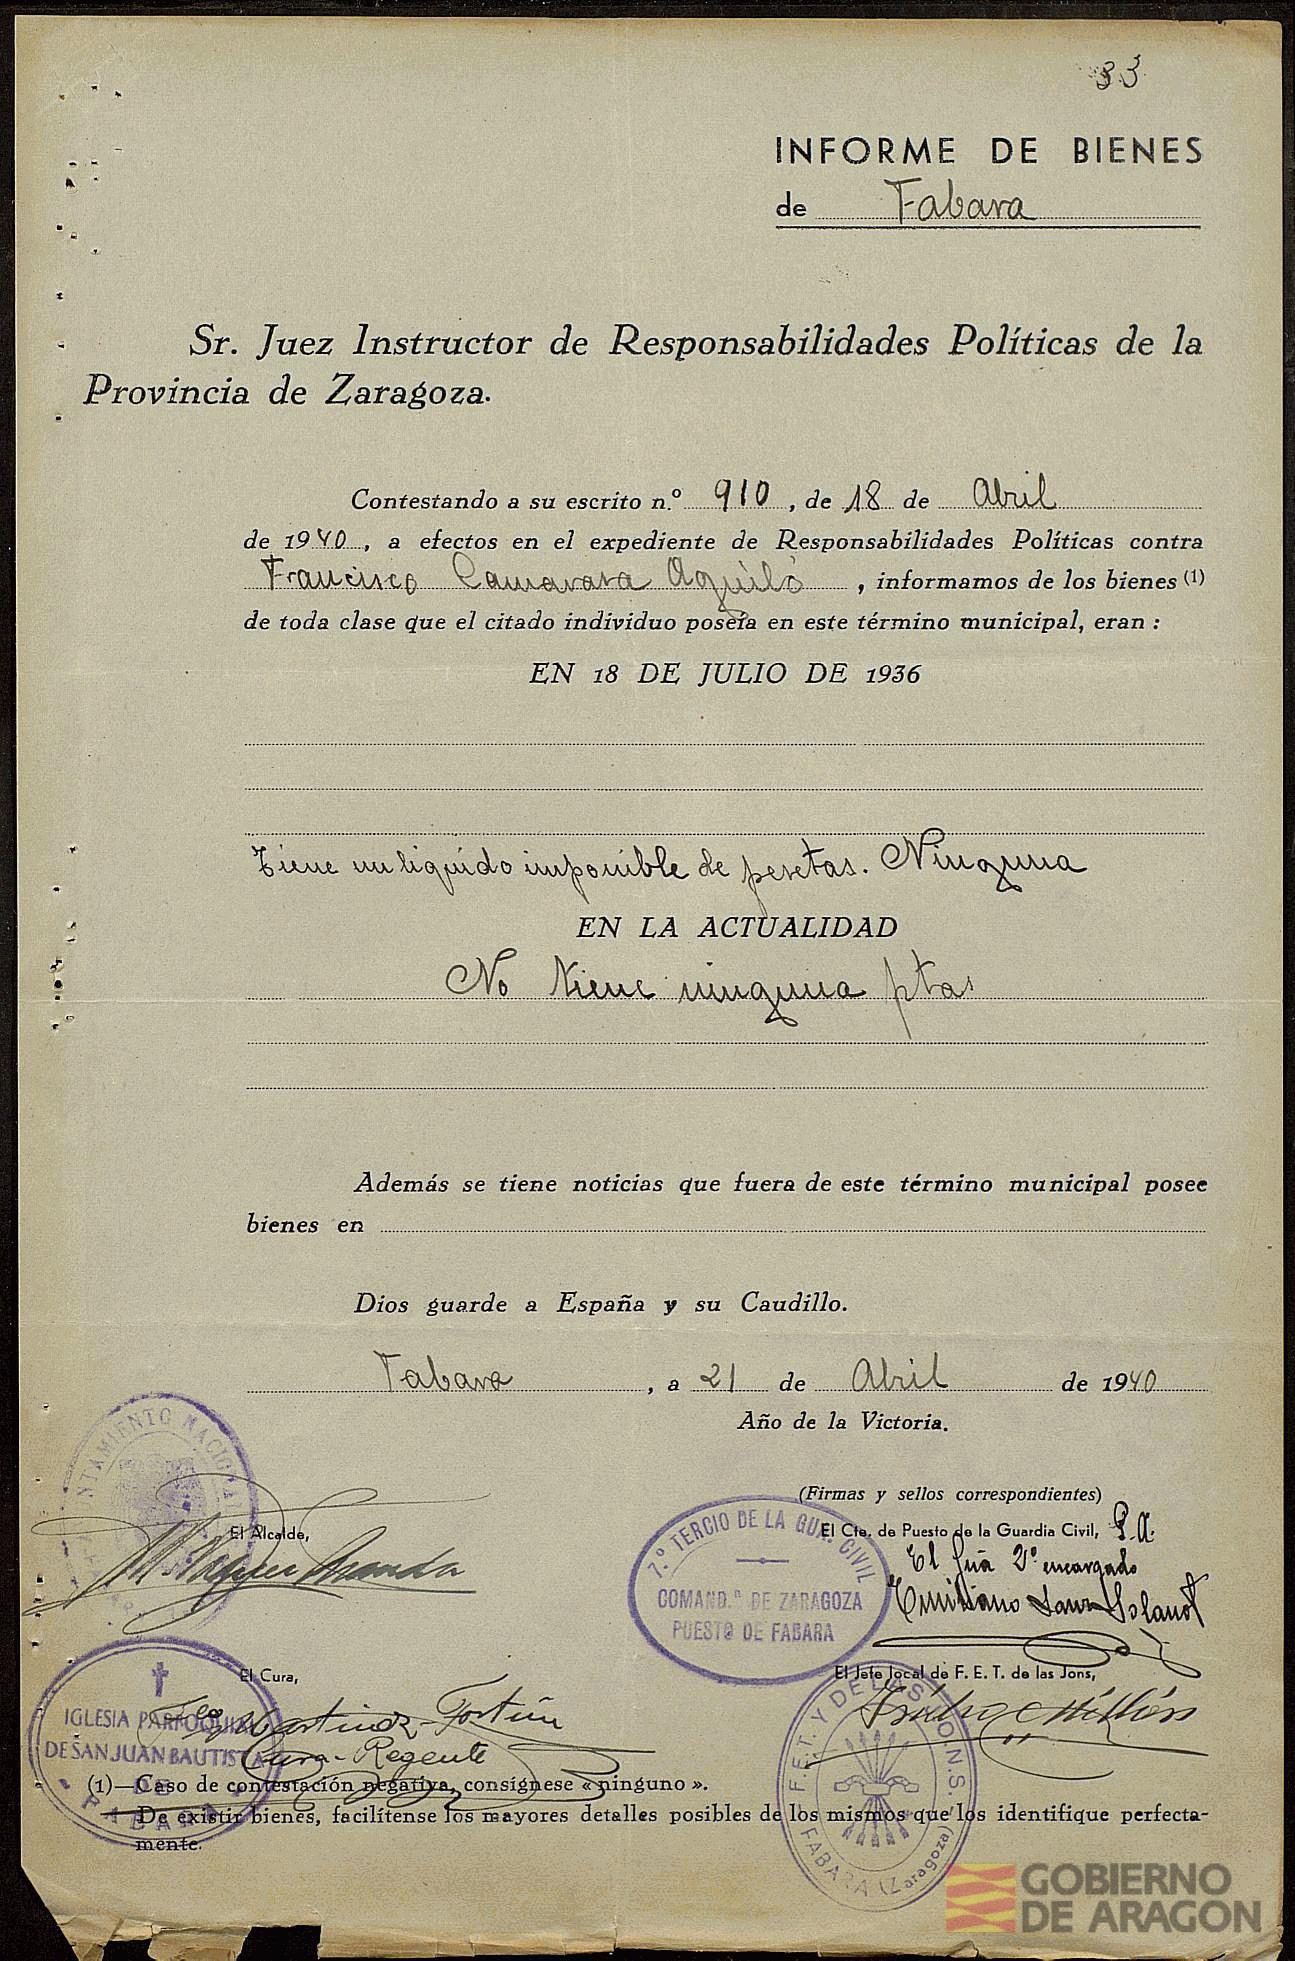 33
INFORME DE BIENES
de Fabara
Sr. Juez Instructor de Responsabilidades Políticas de la
Provincia de Zaragoza.
Contestando a su escrito n.º 910, de 18 de Abril
de 1940, a efectos en el expediente de Responsabilidades Políticas contra
Francisco Camarara Aguiló, informamos de los bienes (1)
de toda clase que el citado individuo poseía en este término municipal, eran:
EN 18 DE JULIO DE 1936
Tiene un liquido imponible de pesetas. Ninguna
EN LA ACTUALIDAD
No tiene ninguna ptas
Además se tiene noticias que fuera de este término municipal posee
bienes en
Dios guarde a España y su Caudillo.
Fabara, a 21 de Abril de 1940
Año de la Victoria.
(Firmas y sellos correspondientes)
El Alcalde,
El Cte. de Puesto de la Guardia Civil, P.A.
El Guª 2º encargado
Emiliano Sanz Solanot
AYUNTAMIENTO NACIONAL
7.º TERCIO DE LA GUA. CIVIL
COMAND.ª DE ZARAGOZA
PUESTO DE FABARA
El Cura,
El Jefe local de F. E. T. de las Jons,
Martinez Fortún
Cura-Regente
IGLESIA PARROQUIAL
DE SAN JUAN BAUTISTA
DE
FABARA
F.E.T. Y DE LAS J.O.N.S.
FABARA (Zaragoza)
(1)—Caso de contestación negativa, consígnese «ninguno».
De existir bienes, facilítense los mayores detalles posibles de los mismos que los identifique perfecta-
mente.
GOBIERNO
DE ARAGON